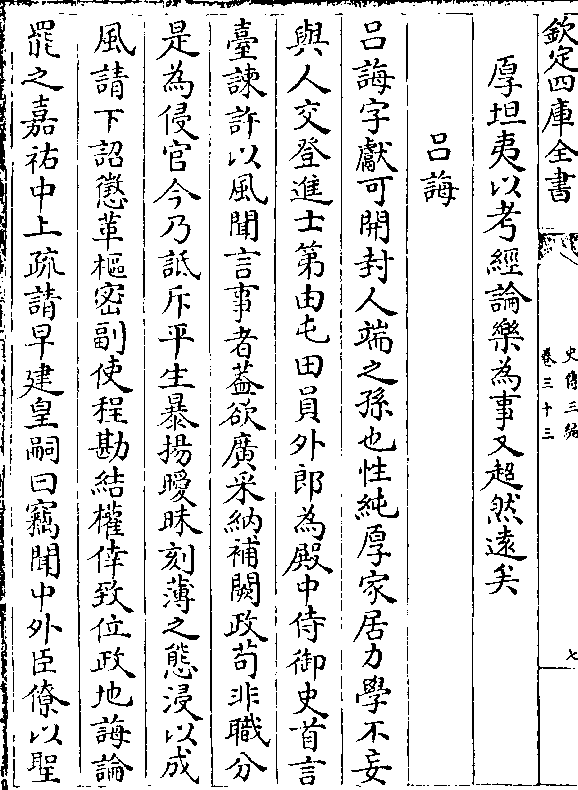 欽定四庫全書
史傳三編
卷三十三
七
厚坦夷以考經論樂為事又超然遠矣
呂誨
呂誨字獻可開封人端之孫也性純厚家居力學不妄
與人交登進士第由屯田員外郎為殿中侍御史首言
臺諫許以風聞言事者葢欲廣采納補闕政茍非職分
是為侵官今乃詆斥平生暴揚曖昧刻薄之態浸以成
風請下詔懲革樞密副使程勘結權倖致位政地誨論
罷之嘉祐中上疏請早建皇嗣曰竊聞中外臣僚以聖